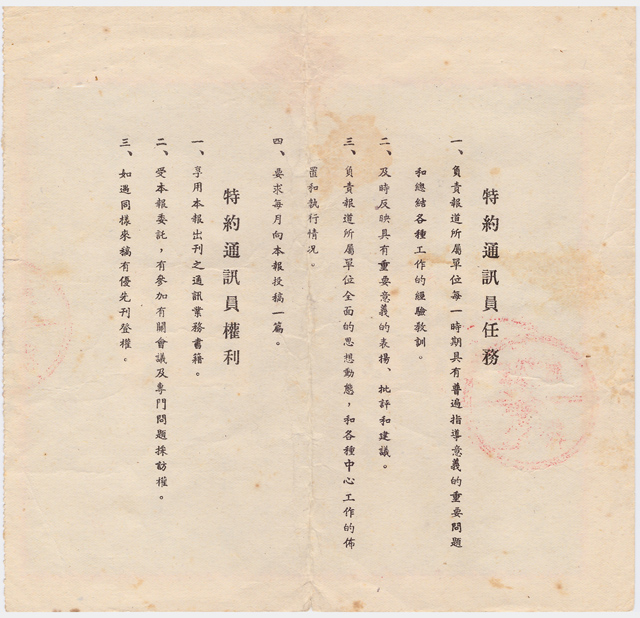 特約通訊員任務
一、負責報道所屬單位每一時期具有普遍指導意義的重要問題
和總結各種工作的經驗教訓。
二、及時反映具有重要意義的表揚、批評和建議。
三、負責報道所屬單位全面的思想動態，和各種中心工作的佈
置和執行情况。
四、要求每月向本報投稿一篇。
特約通訊員權利
一、享用本報出刊之通訊業務書籍。
二、受本報委託，有參加有關會議及專門問題採訪權。
三、如遇同樣來稿有優先刊登權。